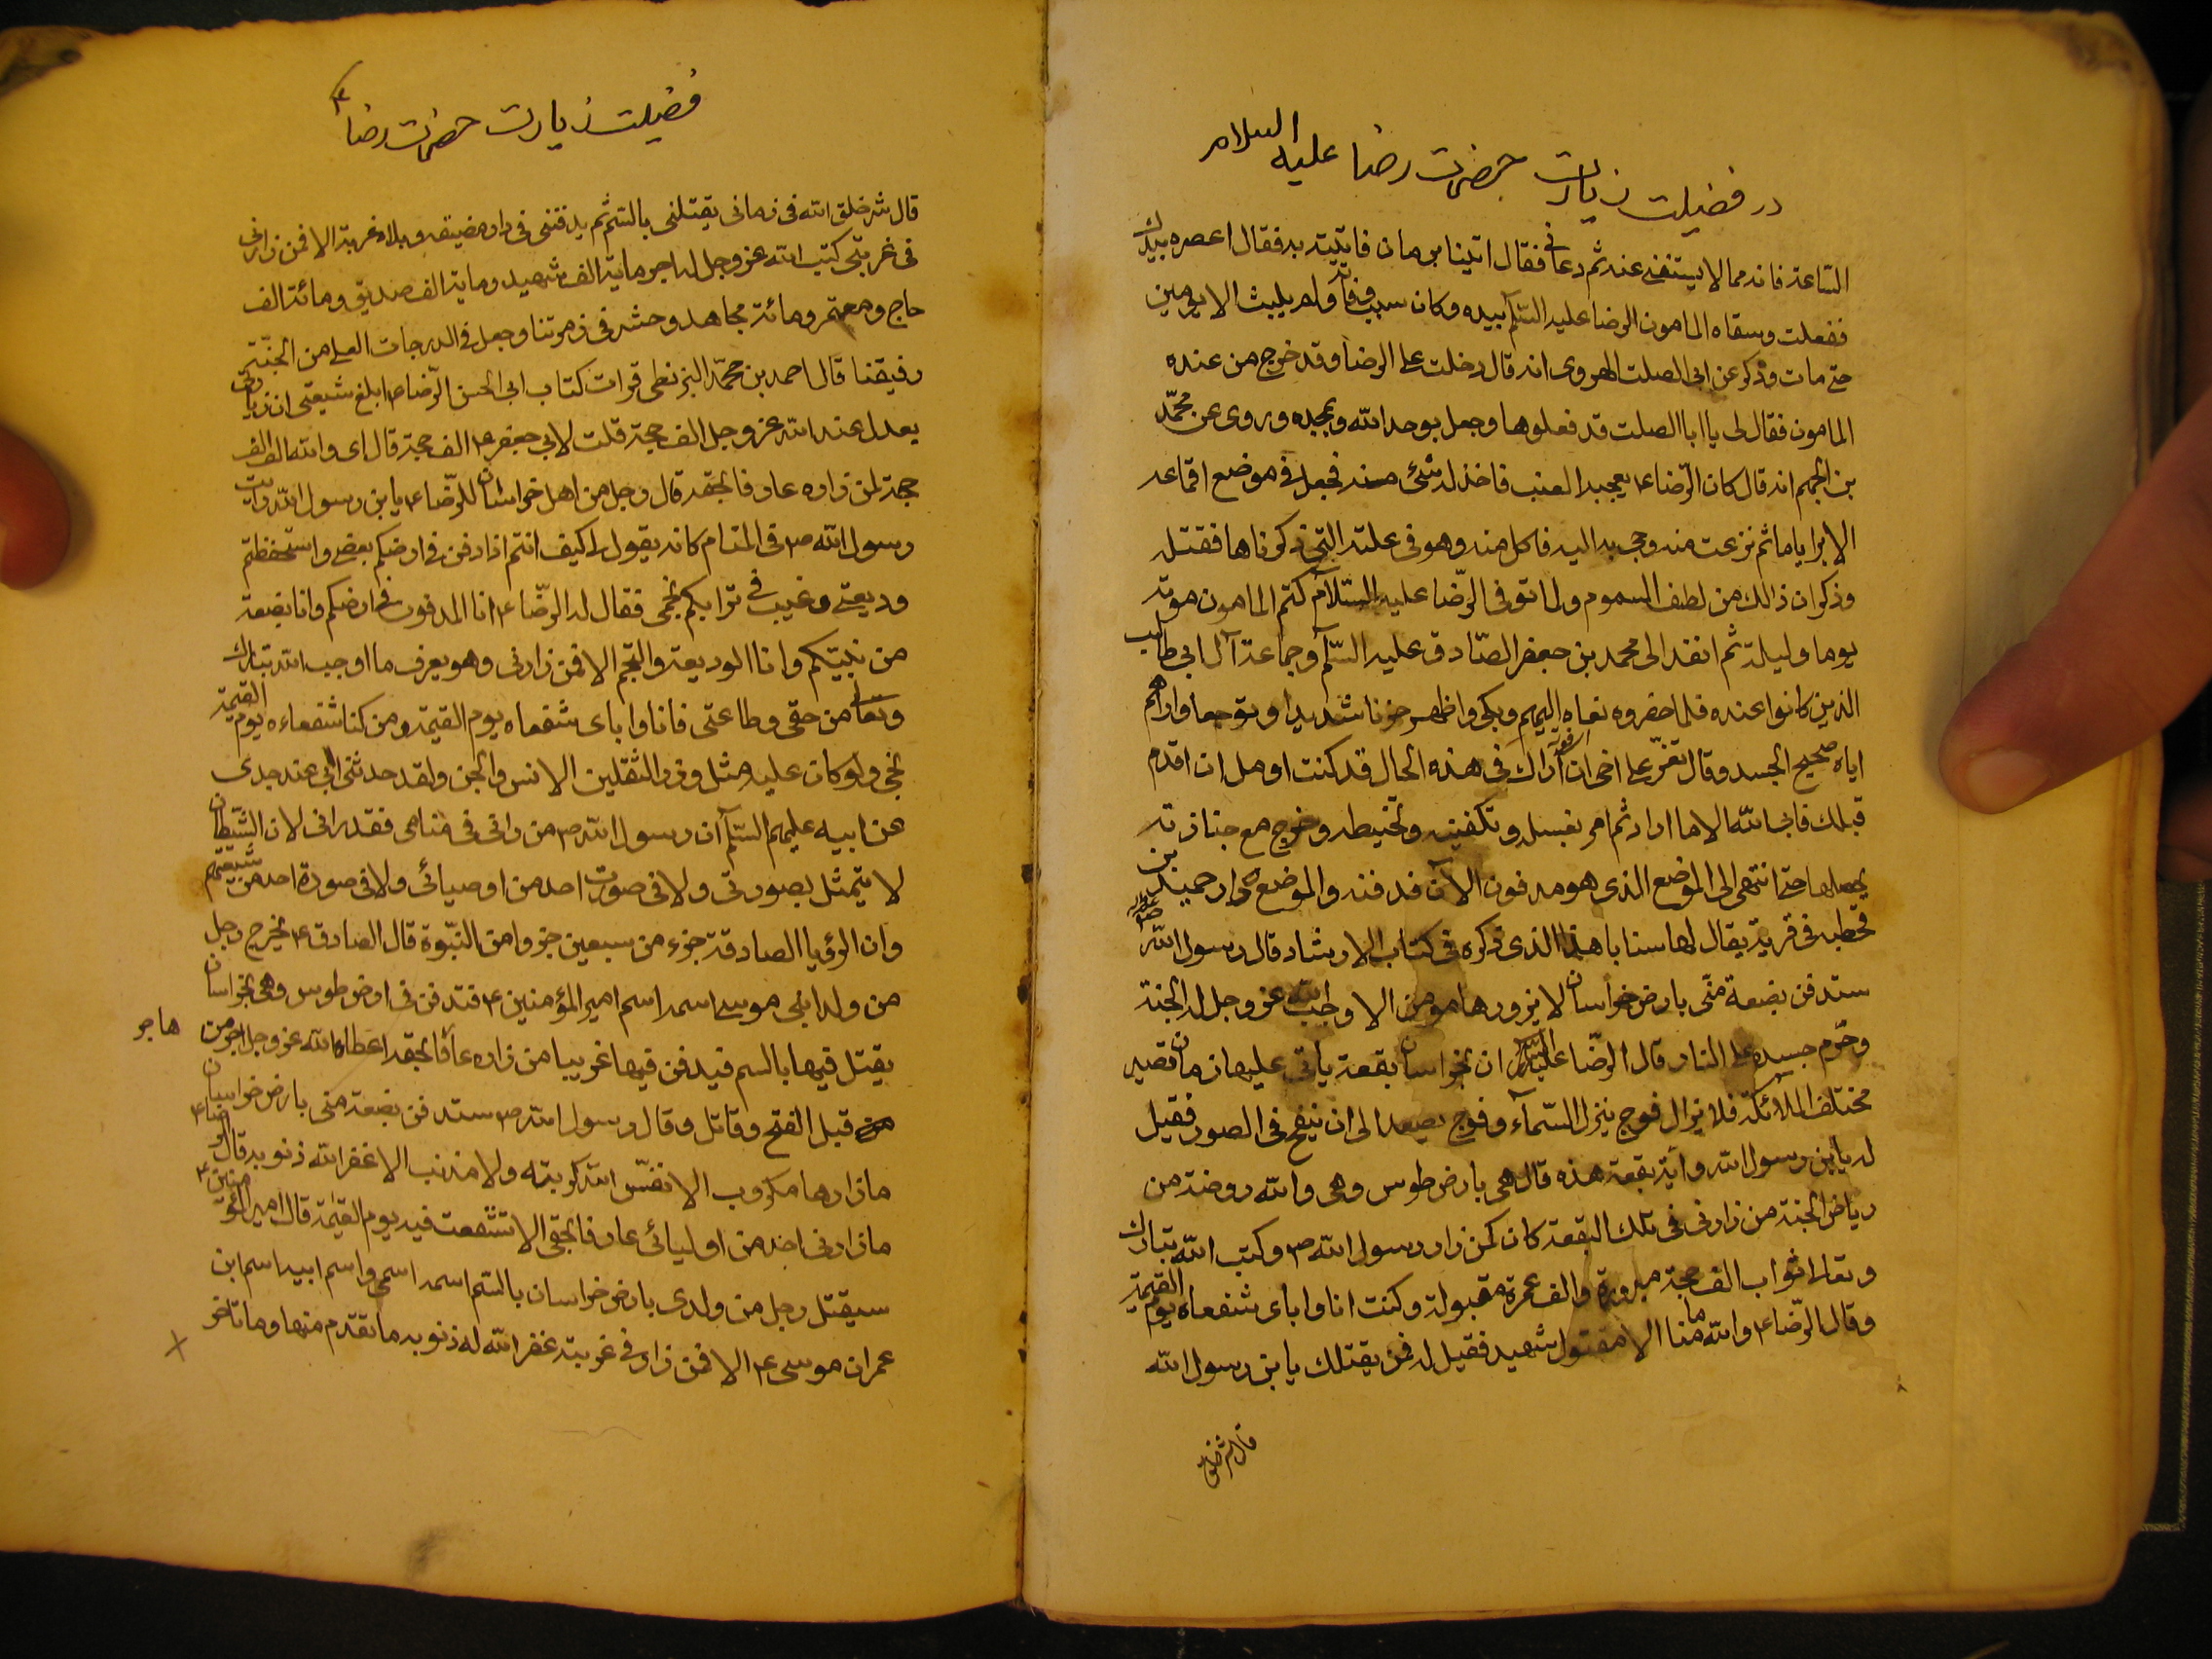 در فضیلت زیارت حضرت رضا علیه السلام
الساعة فانه مما لا يستغنى عنه ثم دعانى فقال اتينا برمان فاتيته به فقال اعصره بيدك
ففعلت وسقاه المامون الرضا عليه السلم بيده وكان سبب وفاته ولم يلبث الا يومين
حتى مات وذكر عن ابى الصلت الهروى انه قال دخلت على الرضا وقد خرج من عنده
المامون فقال لى يا ابا الصلت قد فعلوها وجعل يوحد الله ويمجده وروى عن محمد
بن الجهم انه قال كان الرضا ع يعجبه العنب فاخذ له شئ منه فجعل فى موضع اقماعه
الابر اياما ثم نزعت منه وجئ به اليه فاكل منه وهو فى علته التى ذكرناها فقتله
وذكر ان ذالك من لطف السموم ولما توفى الرضا عليه السلام كتم المامون موته
يوما وليلة ثم انفذ الى محمد بن جعفر الصادق عليه السلم وجماعة آل ابى طالب
الذين كانوا عنده فلما حضروه نعاه اليهم وبكى واظهر حزنا شديدا وتوجعا واراهم
اياه صحيح الجسد وقال يعز على اخى ان آراك فى هذه الحال قد كنت اومل ان اقدم
قبلك فابى الله الا ما اراد ثم امر بغسله وتكفينه وتحنيطه وخرج مع جنازته
يحملها حتى انتهى الى الموضع الذى هو مدفون الآن فدفنه والموضع دار حميد بن
قحطبه فى قرية يقال لها سناباد هذا الذى ذكره فى كتاب الارشاد قال رسول الله
ستدفن بضعة منى بارض خراسان لا يزورها مومن الا واجب الله عز وجل له الجنة
وحرم جسده على النار قال الرضا عليه السلم ان بخراسان بقعة ياتى عليها زمان تصير
مختلف الملائكة فلا يزال فوج ينزل السماء وفوج يصعد الى ان ينفخ فى الصور فقيل
له يابن رسول الله واية بقعة هذه قال هى بارض طوس وهى والله روضة من
رياض الجنة من زارنى فى تلك البقعة كان كمن زار رسول الله ص وكتب الله تبارك
وتعالى ثواب الف حجة مبرورة والف عمرة مقبولة وكنت انا واباى شفعاه يوم القيمة
وقال الرضا ع والله ما منا الا مقتول شهيد فقيل له فمن يقتلك يابن رسول الله
فضیلت زیارت حضرت رضا ع
قال شر خلق الله فى زمانى يقتلنى بالسم ثم يدفننى فى دار مضيقه وبلاد غربة الا فمن زارنى
فى غربتى كتب الله عز وجل له اجر ماية الف شهيد وماية الف صديق ومائة الف
حاج ومعتمر ومائة مجاهد وحشر فى زمرتنا وجعل فى الدرجات العلى من الجنة
رفيقنا قال احمد بن محمد البزنطى قرات كتاب ابى الحسن الرضا ع ابلغ شيعتى ان زيارتى
يعدل عند الله عز وجل الف حجة قلت لابى جعفر ع الف حجة قال اى والله الف الف
حجة لمن زاره عارفا بحقه قال رجل من اهل خراسان للرضا ع يابن رسول الله رايت
رسول الله ص فى المنام كانه يقول لى كيف انتم اذا دفن فى ارضكم بعضى واستحفظتم
وديعتى وغيب فى ترابكم نجمى فقال له الرضا ع انا المدفون فى ارضكم وانا بضعة
من نبيتكم وانا الوديعة والنجم الا فمن زارنى وهو يعرف ما اوجب الله تبارك
وتعالى من حقى وطاعتى فانا واباى شفعاه يوم القيمة ومن كنا شفعاءه يوم القيمة
نجى ولو كان عليه مثل وزر الثقلين الانس والجن ولقد حدثنى ابى عند جدى
عن ابيه عليهم السلم ان رسول الله ص من رانى فى منامى فقد رانى لان الشيطان
لا يتمثل بصورتى ولا فى صورت احد من اوصيائى ولا فى صورة احد من شيعتهم
وان الرؤيا الصادقة جزء من سبعين جزوا من النبوة قال الصادق ع يخرج رجل
من ولد ابنى موسى اسمه اسم امير المؤمنين ع فتدفن فى ارض طوس وهى بخراسان
يقتل فيها بالسم فيدفن فيها غريبا من زاره عارفا بحقه اعطاه الله عز وجل اجر من
هاجر
من قبل الفتح وقاتل وقال رسول الله ص ستدفن بضعة منى بارض خراسان
ما زارها مكروب الا نفس الله كربته ولا مذنب الا غفر الله ذنوبه قال الرضا ع
ما زارنى احد من اوليائى عارفا بحقى الا تشفعت فيه يوم القيمة قال امير المؤمنين ع
سيقتل رجل من ولدى بارض خراسان بالسم اسمه اسمى واسم ابيه اسم ابن
عمران موسى ع الا فمن زاره فى غربته غفر الله له ذنوبه ما تقدم منها وما تاخر